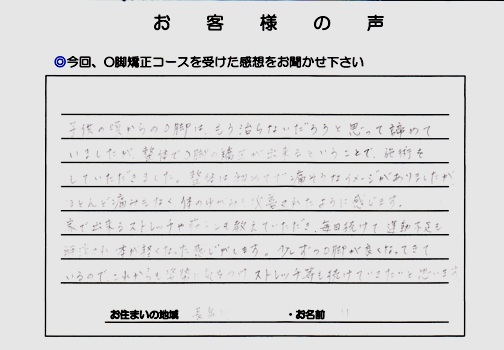 お客様の声
◎今回、O脚矯正コースを受けた感想をお聞かせ下さい
子供の頃からのO脚は、もう治らないだろうと思って諦めて
いましたが、整体でO脚の矯正が出来るということで、施術を
していただきました。整体は初めてで痛そうなイメージがありましたが
ほとんど痛みもなく体のゆがみも改善されたように感じます。
家で出来るストレッチや も教えていただき、毎日続けて運動不足も
解消され体が軽くなった感じがします。少しずつO脚が良くなってきて
いるので、これからも姿勢に気をつけストレッチ等も続けていきたいと思います
お住まいの地域
・お名前